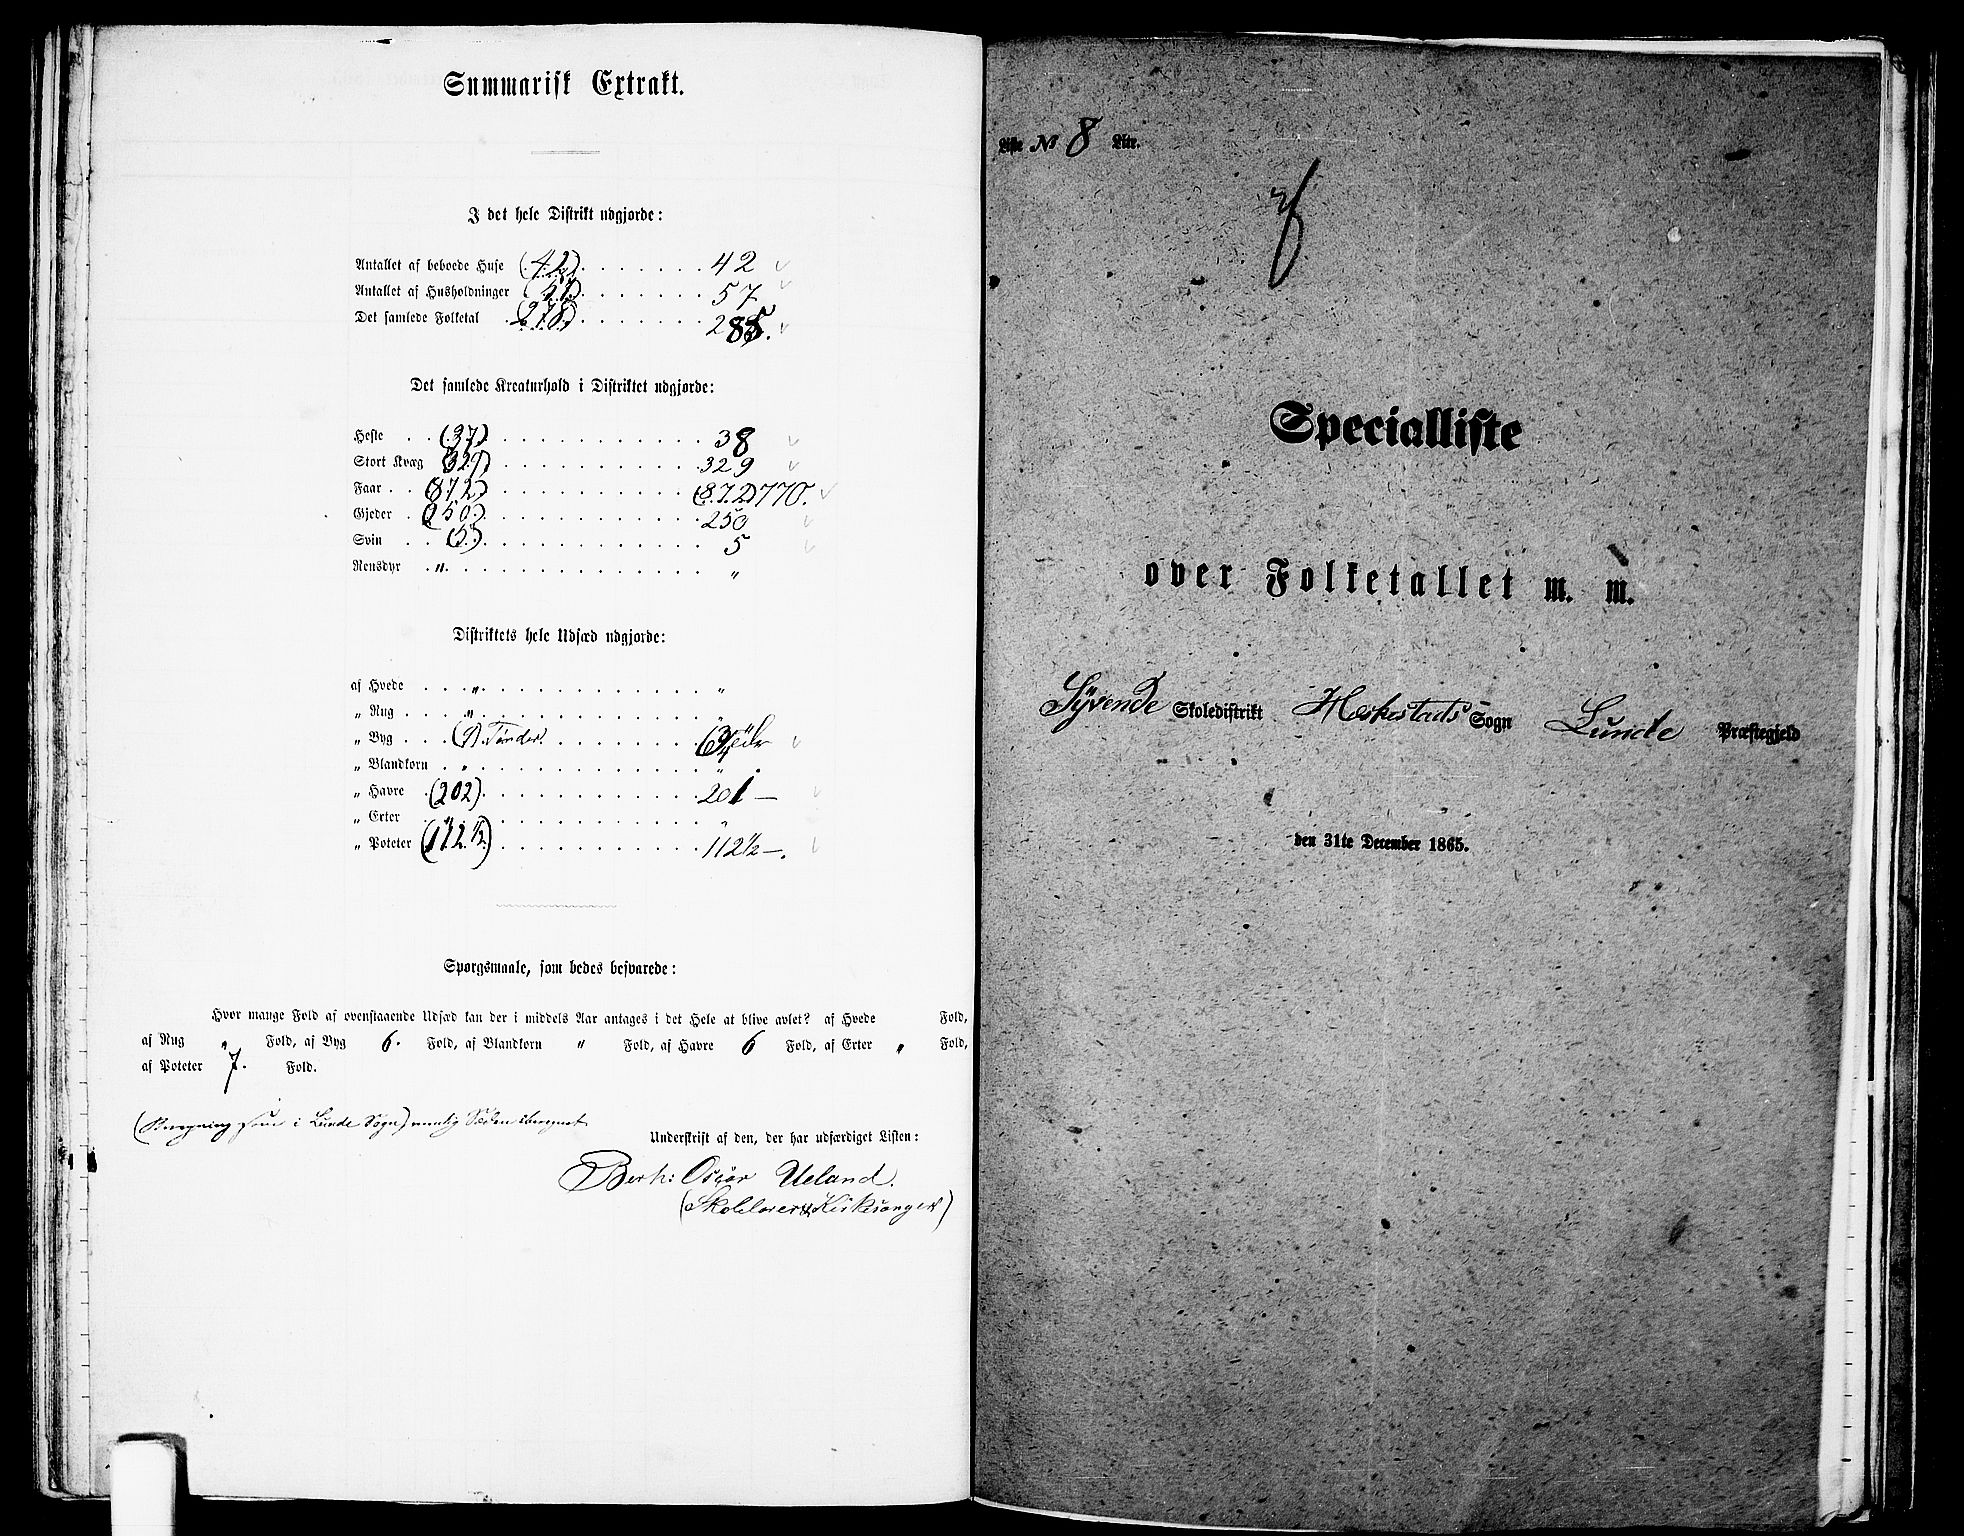 Summarisk Extrakt.
I det hele Distrikt udgjorde:
Antallet af beboede Huse (42) 42
Antallet af Husholdninger 57
Det samlede Folketal (278) 285.
Det samlede Kreaturhold i Distriktet udgjorde:
Heste (37) 38
Stort Kvæg (329) 329
Faar (872) (872) 770.
Gjeder (250) 250
Svin (5) 5
Rensdyr " "
Distriktets hele Udsæd udgjorde:
af Hvede " "
" Rug " "
" Byg Tønder.
" Blandkorn " "
" Havre (202) 201 —
" Erter " "
" Poteter (112 ½) 112½ —.
Spørgsmaale, som bedes besvarede:
Hvor mange Fold af ovenstaaende Udsæd kan der i middels Aar antages i det Hele at blive avlet? af Hvede Fold,
af Rug " Fold, af Byg 6. Fold, af Blandkorn " Fold, af Havre 6 Fold, af Erter " Fold,
af Poteter 7. Fold.
som i Lunde Sogn)
Underskrift af den, der har udfærdiget Listen:
Berh: Oscar Ueland.
(Skolelærer & Kirkesanger)
Liste No 8 Litr.
Specialliste
over Folketallet m. m.
Syvende Skoledistrikt Heskestads Sogn Lunde Præstegjeld
den 31te December 1865.